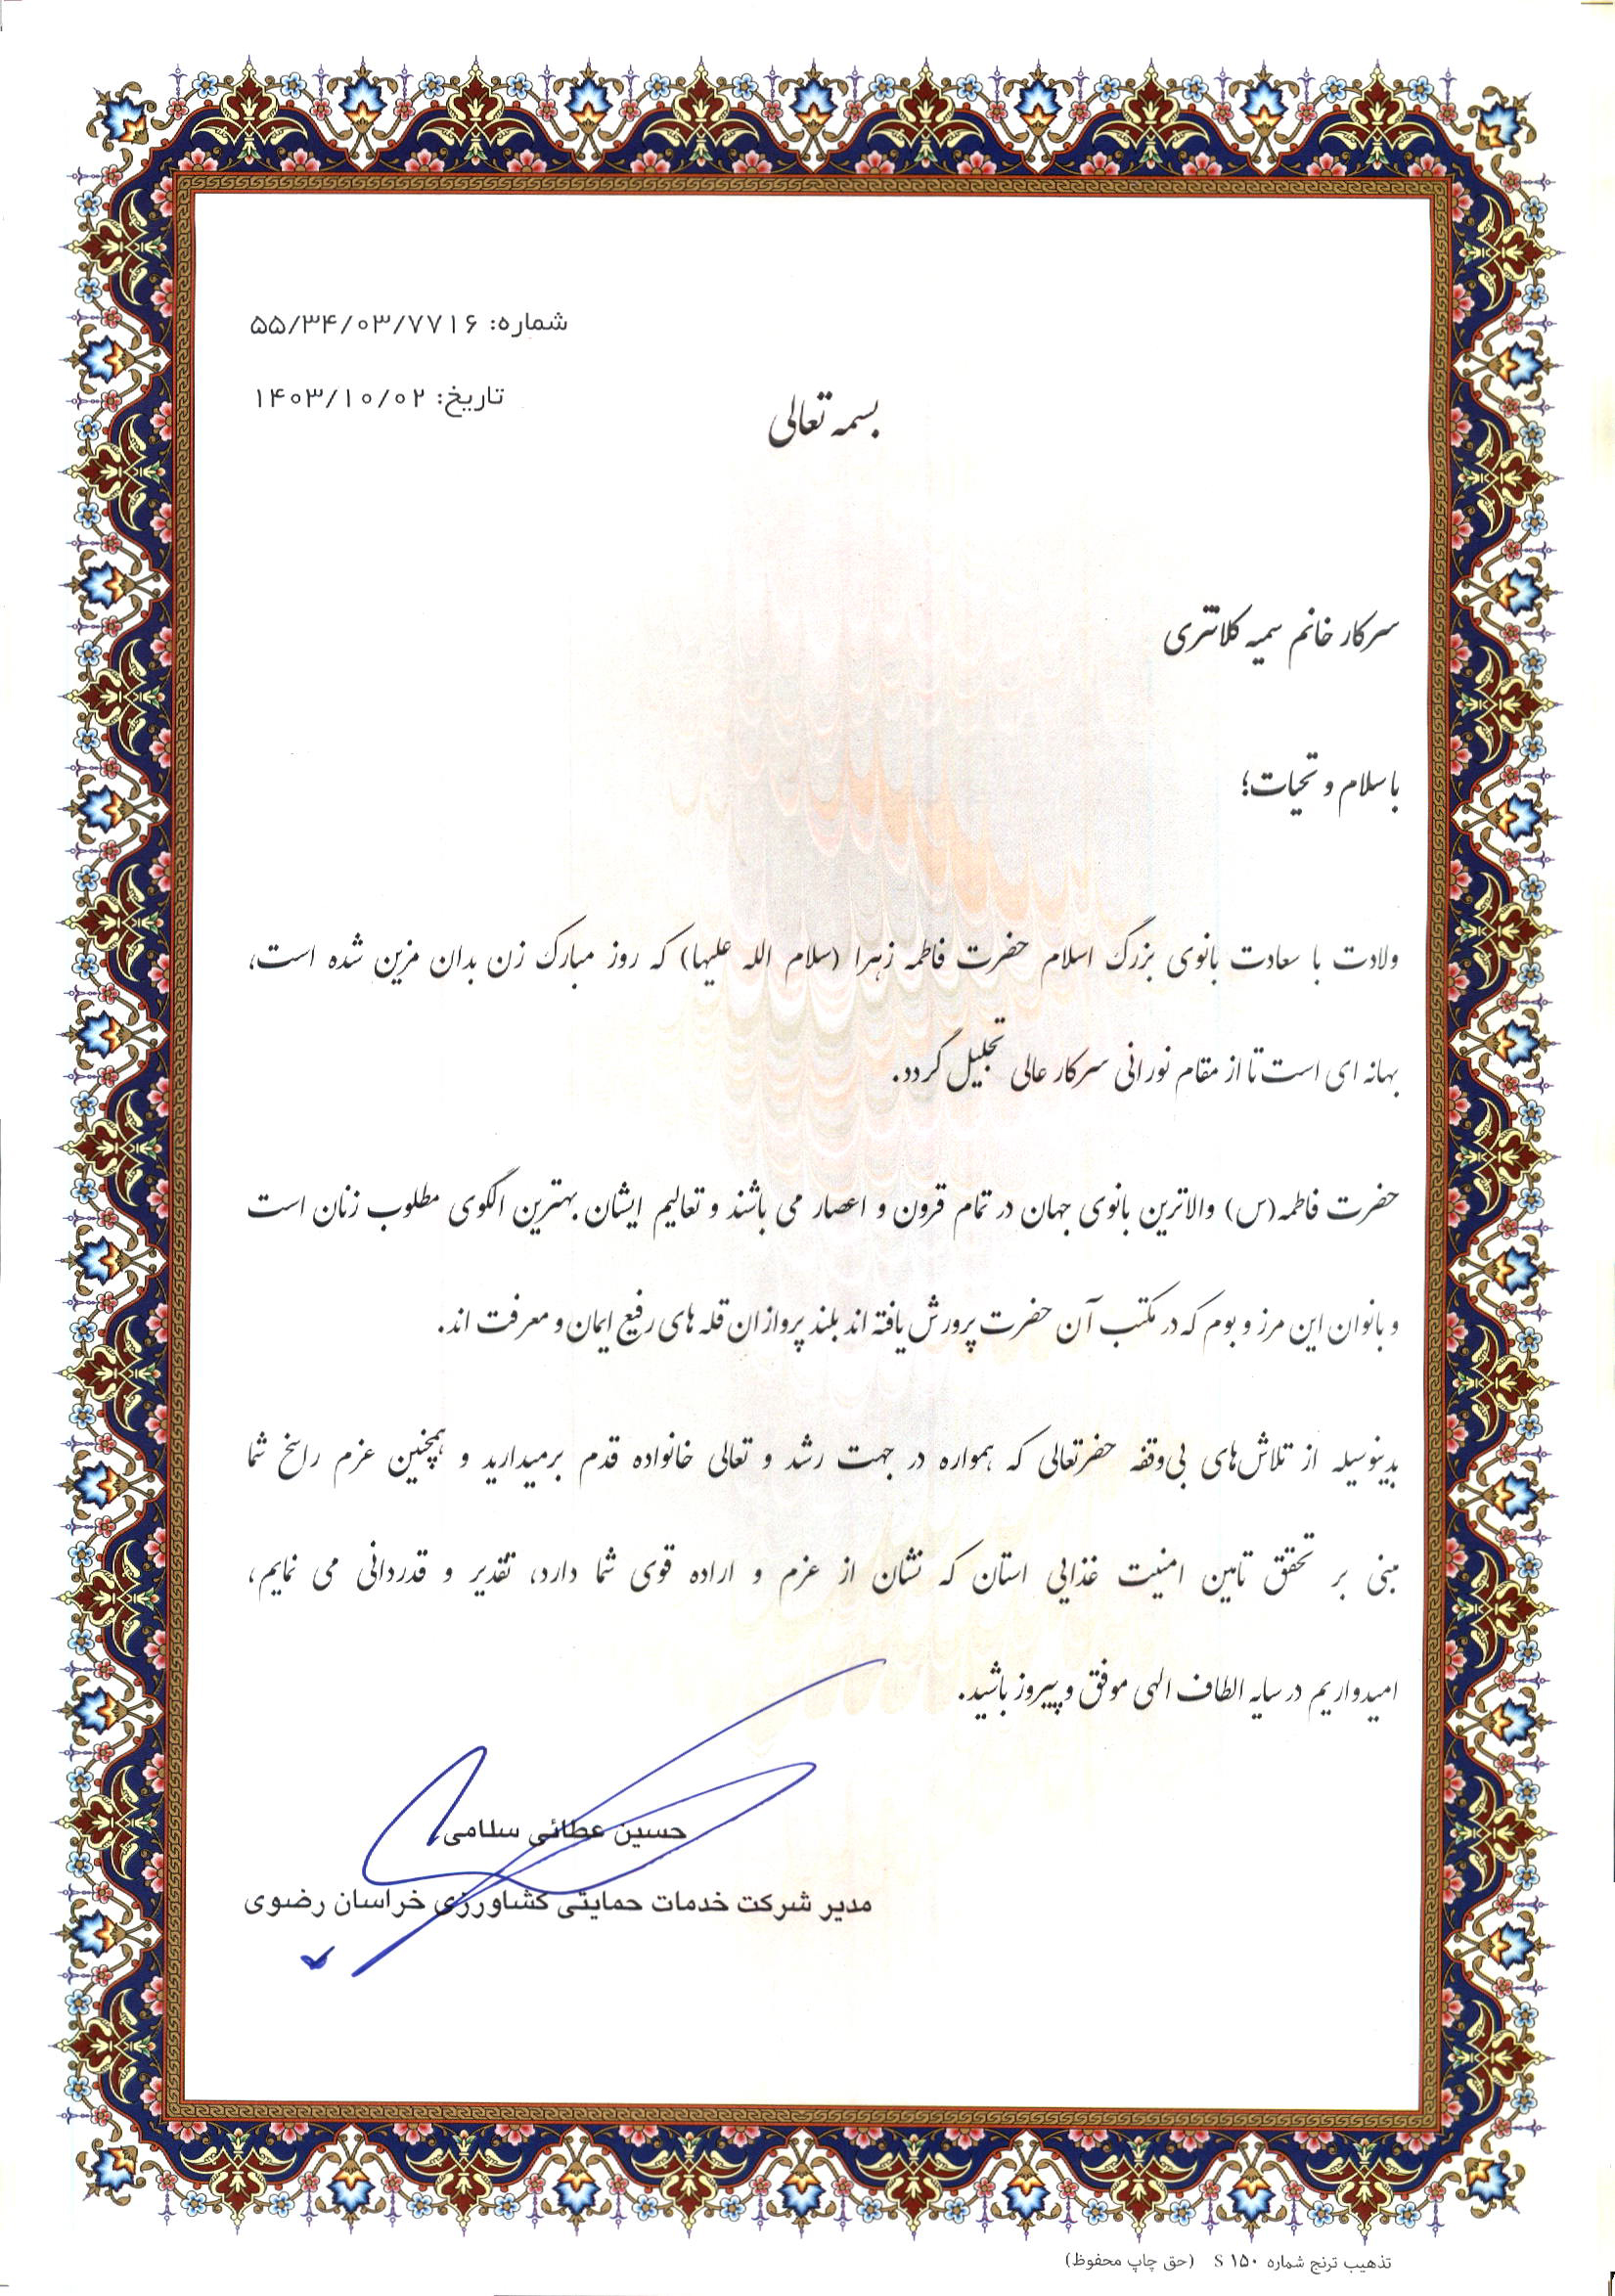 شماره: ۵۵/۳۴/۰۳/۷۷۱۶
تاریخ: ۱۴۰۳/۱۰/۰۲
بسمه تعالی
سرکار خانم سمیه کلانتری
با سلام و تحیات؛
ولادت با سعادت بانوی بزرگ اسلام حضرت فاطمه زهرا (سلام الله علیها) که روز مبارک زن بدان مزین شده است،
بهانه ای است تا از مقام نورانی سرکار عالی تجلیل گردد.
حضرت فاطمه(س) والاترین بانوی جهان در تمام قرون و اعصار می باشند و تعالیم ایشان بهترین الگوی مطلوب زنان است
و بانوان این مرز و بوم که در مکتب آن حضرت پرورش یافته اند بلند پروازان قله های رفیع ایمان و معرفت اند.
بدینوسیله از تلاش‌های بی‌وقفه حضرتعالی که همواره در جهت رشد و تعالی خانواده قدم برمیدارید و همچنین عزم راسخ شما
مبنی بر تحقق تامین امنیت غذایی استان که نشان از عزم و اراده قوی شما دارد، تقدیر و قدردانی می نمایم،
امیدواریم در سایه الطاف الهی موفق و پیروز باشید.
حسین عطائی سلامی
مدیر شرکت خدمات حمایتی کشاورزی خراسان رضوی
تذهیب ترنج شماره S ۱۵۰ (حق چاپ محفوظ)